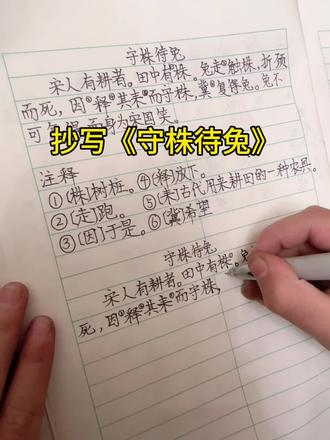 守株待兔
宋人有耕者。田中有株。兔走②触株,折颈
而死,因③释④其耒⑤而守株,冀⑥复得兔。兔不
可
而身为宋国笑。
抄写《守株待兔》
注释
①[株]树桩。④[释]放下。
②[走]跑。⑤[耒]古代用来耕田的一种农具。
③[因]于是。⑥[冀]希望
守株待兔
宋人有耕者。田中有株①。
死,因③释④其耒⑤而守株,